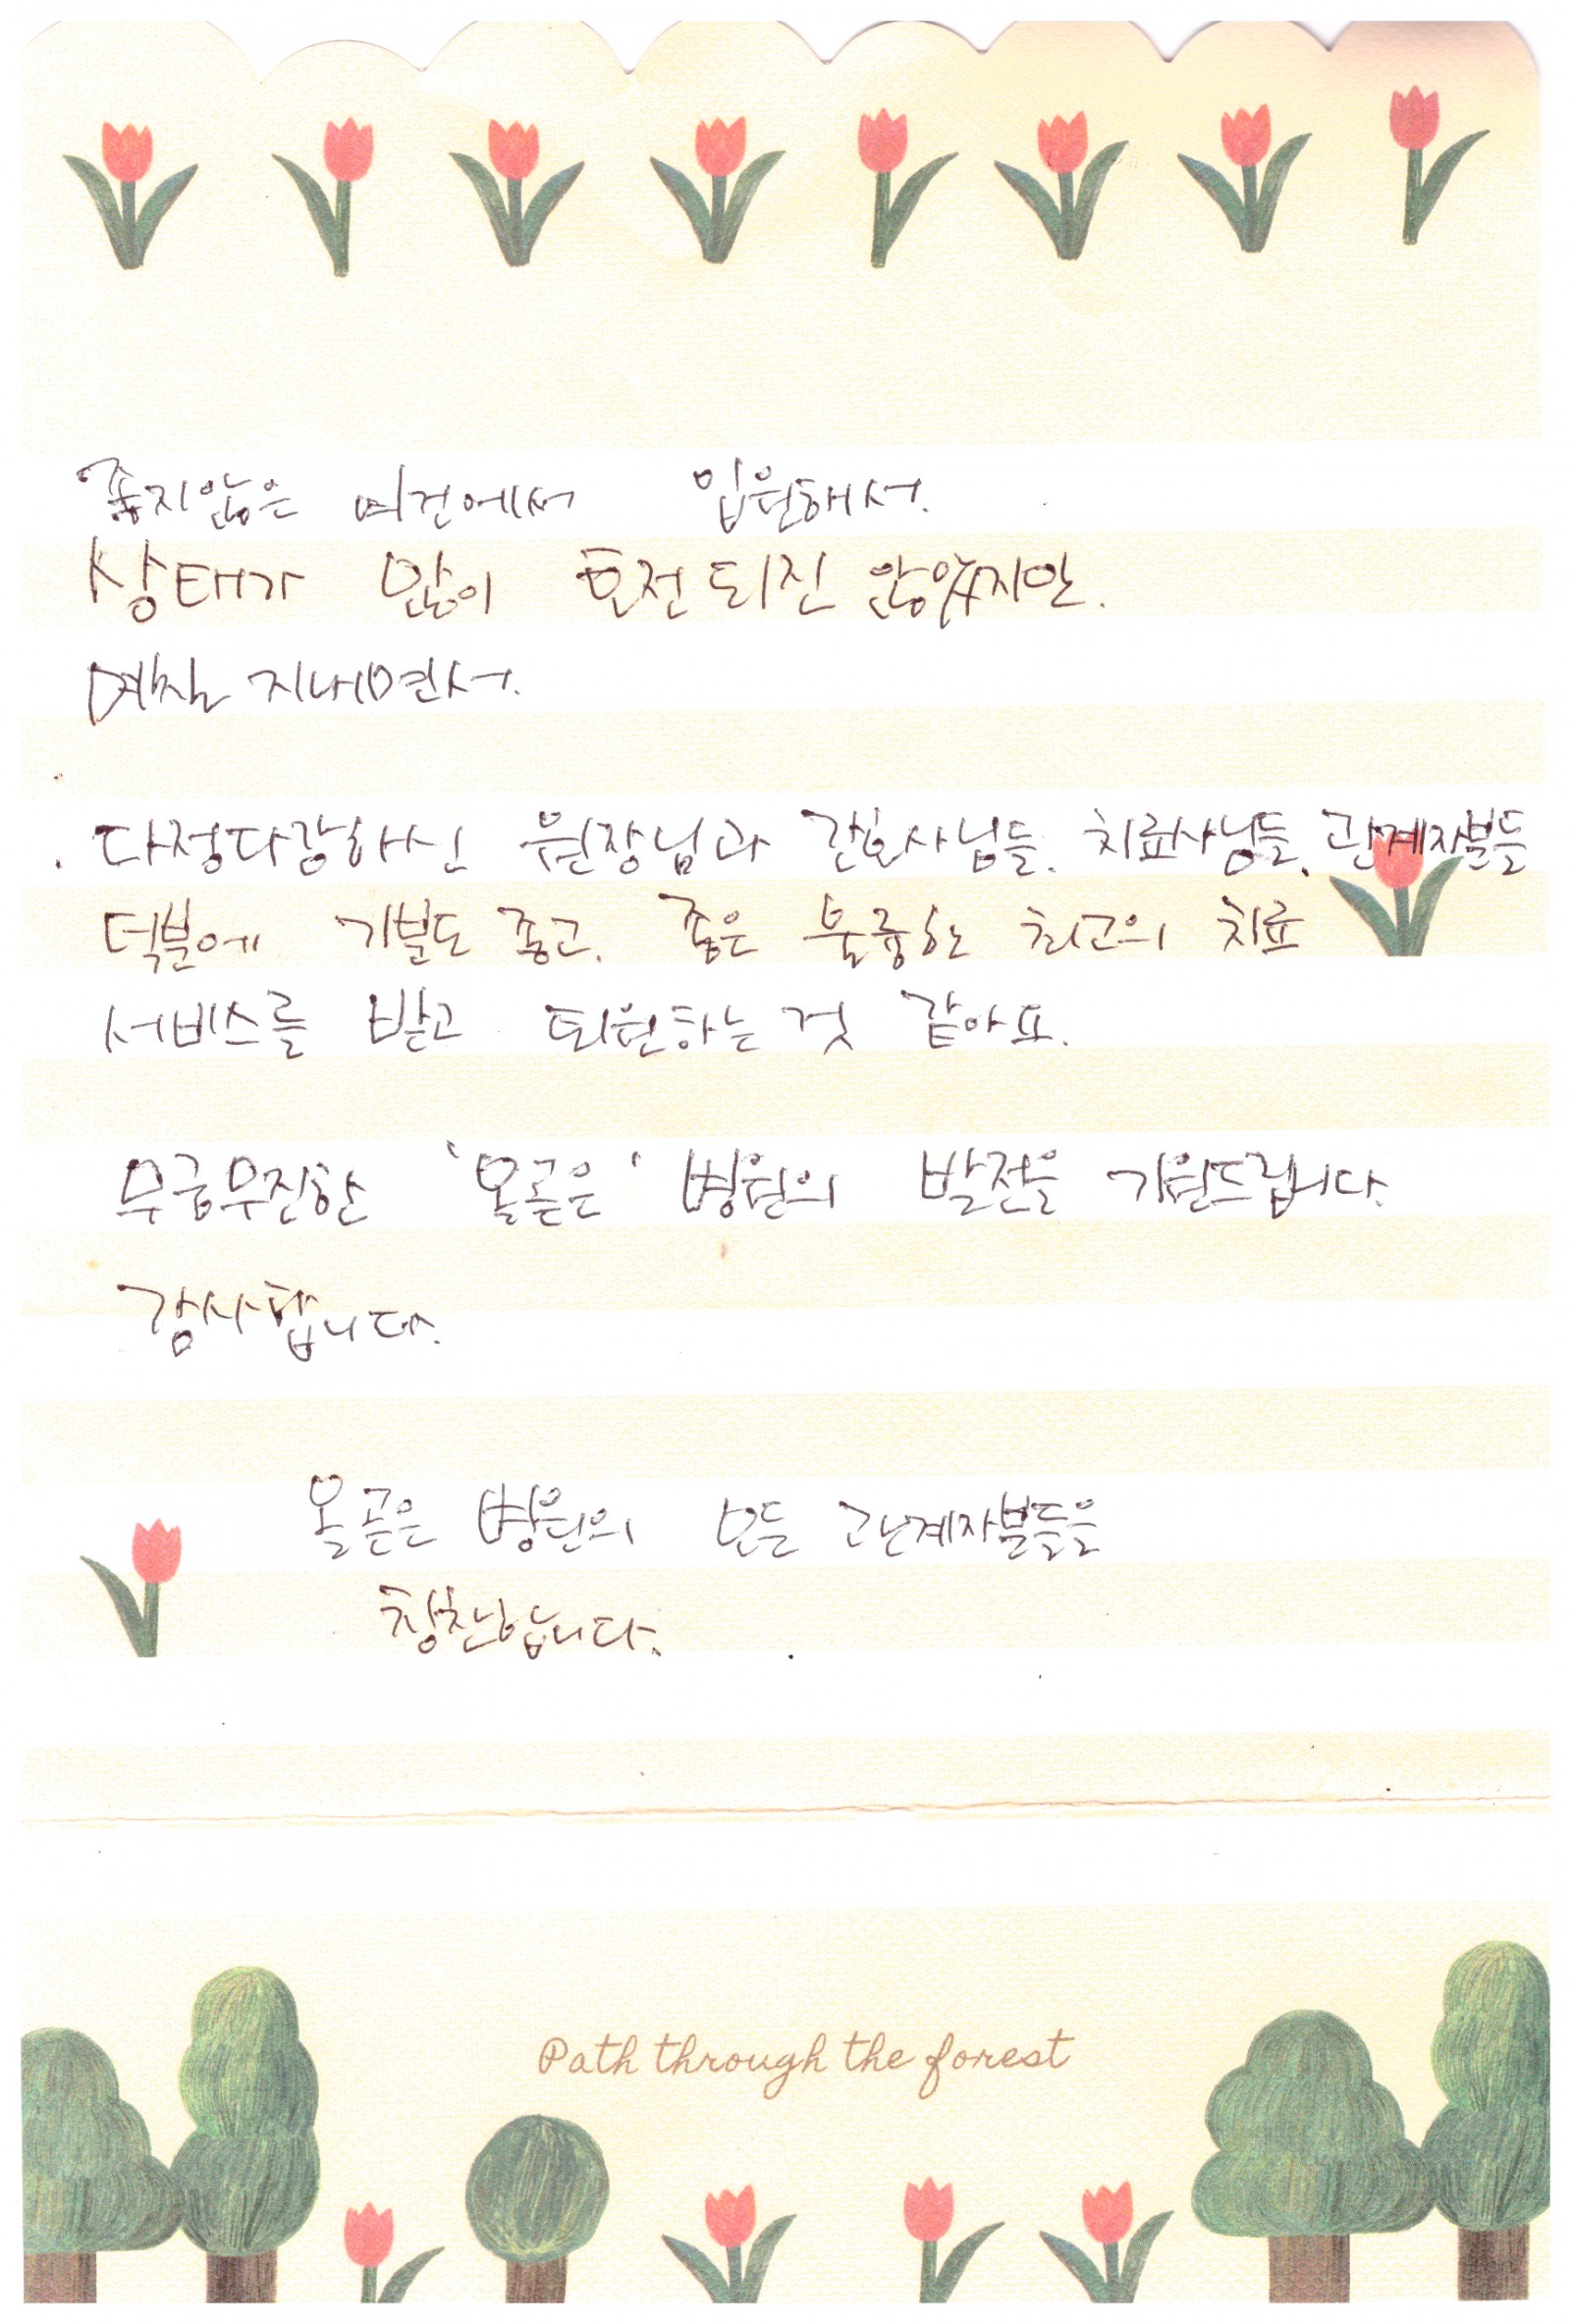 좋지않은 여건에서 입원해서.
상태가 많이 호전되진 않았지만.
며칠 지내면서.
다정다감하신 원장님과 간호사님들. 치료사님들. 관계자분들
덕분에 기분도 좋고. 좋은 훌륭한 최고의 치료
서비스를 받고 퇴원하는 것 같아요.
무궁무진한 '올곧은' 병원의 발전을 기원드립니다.
감사합니다.
올곧은 병원의 모든 관계자분들을
칭찬합니다.
Path through the forest